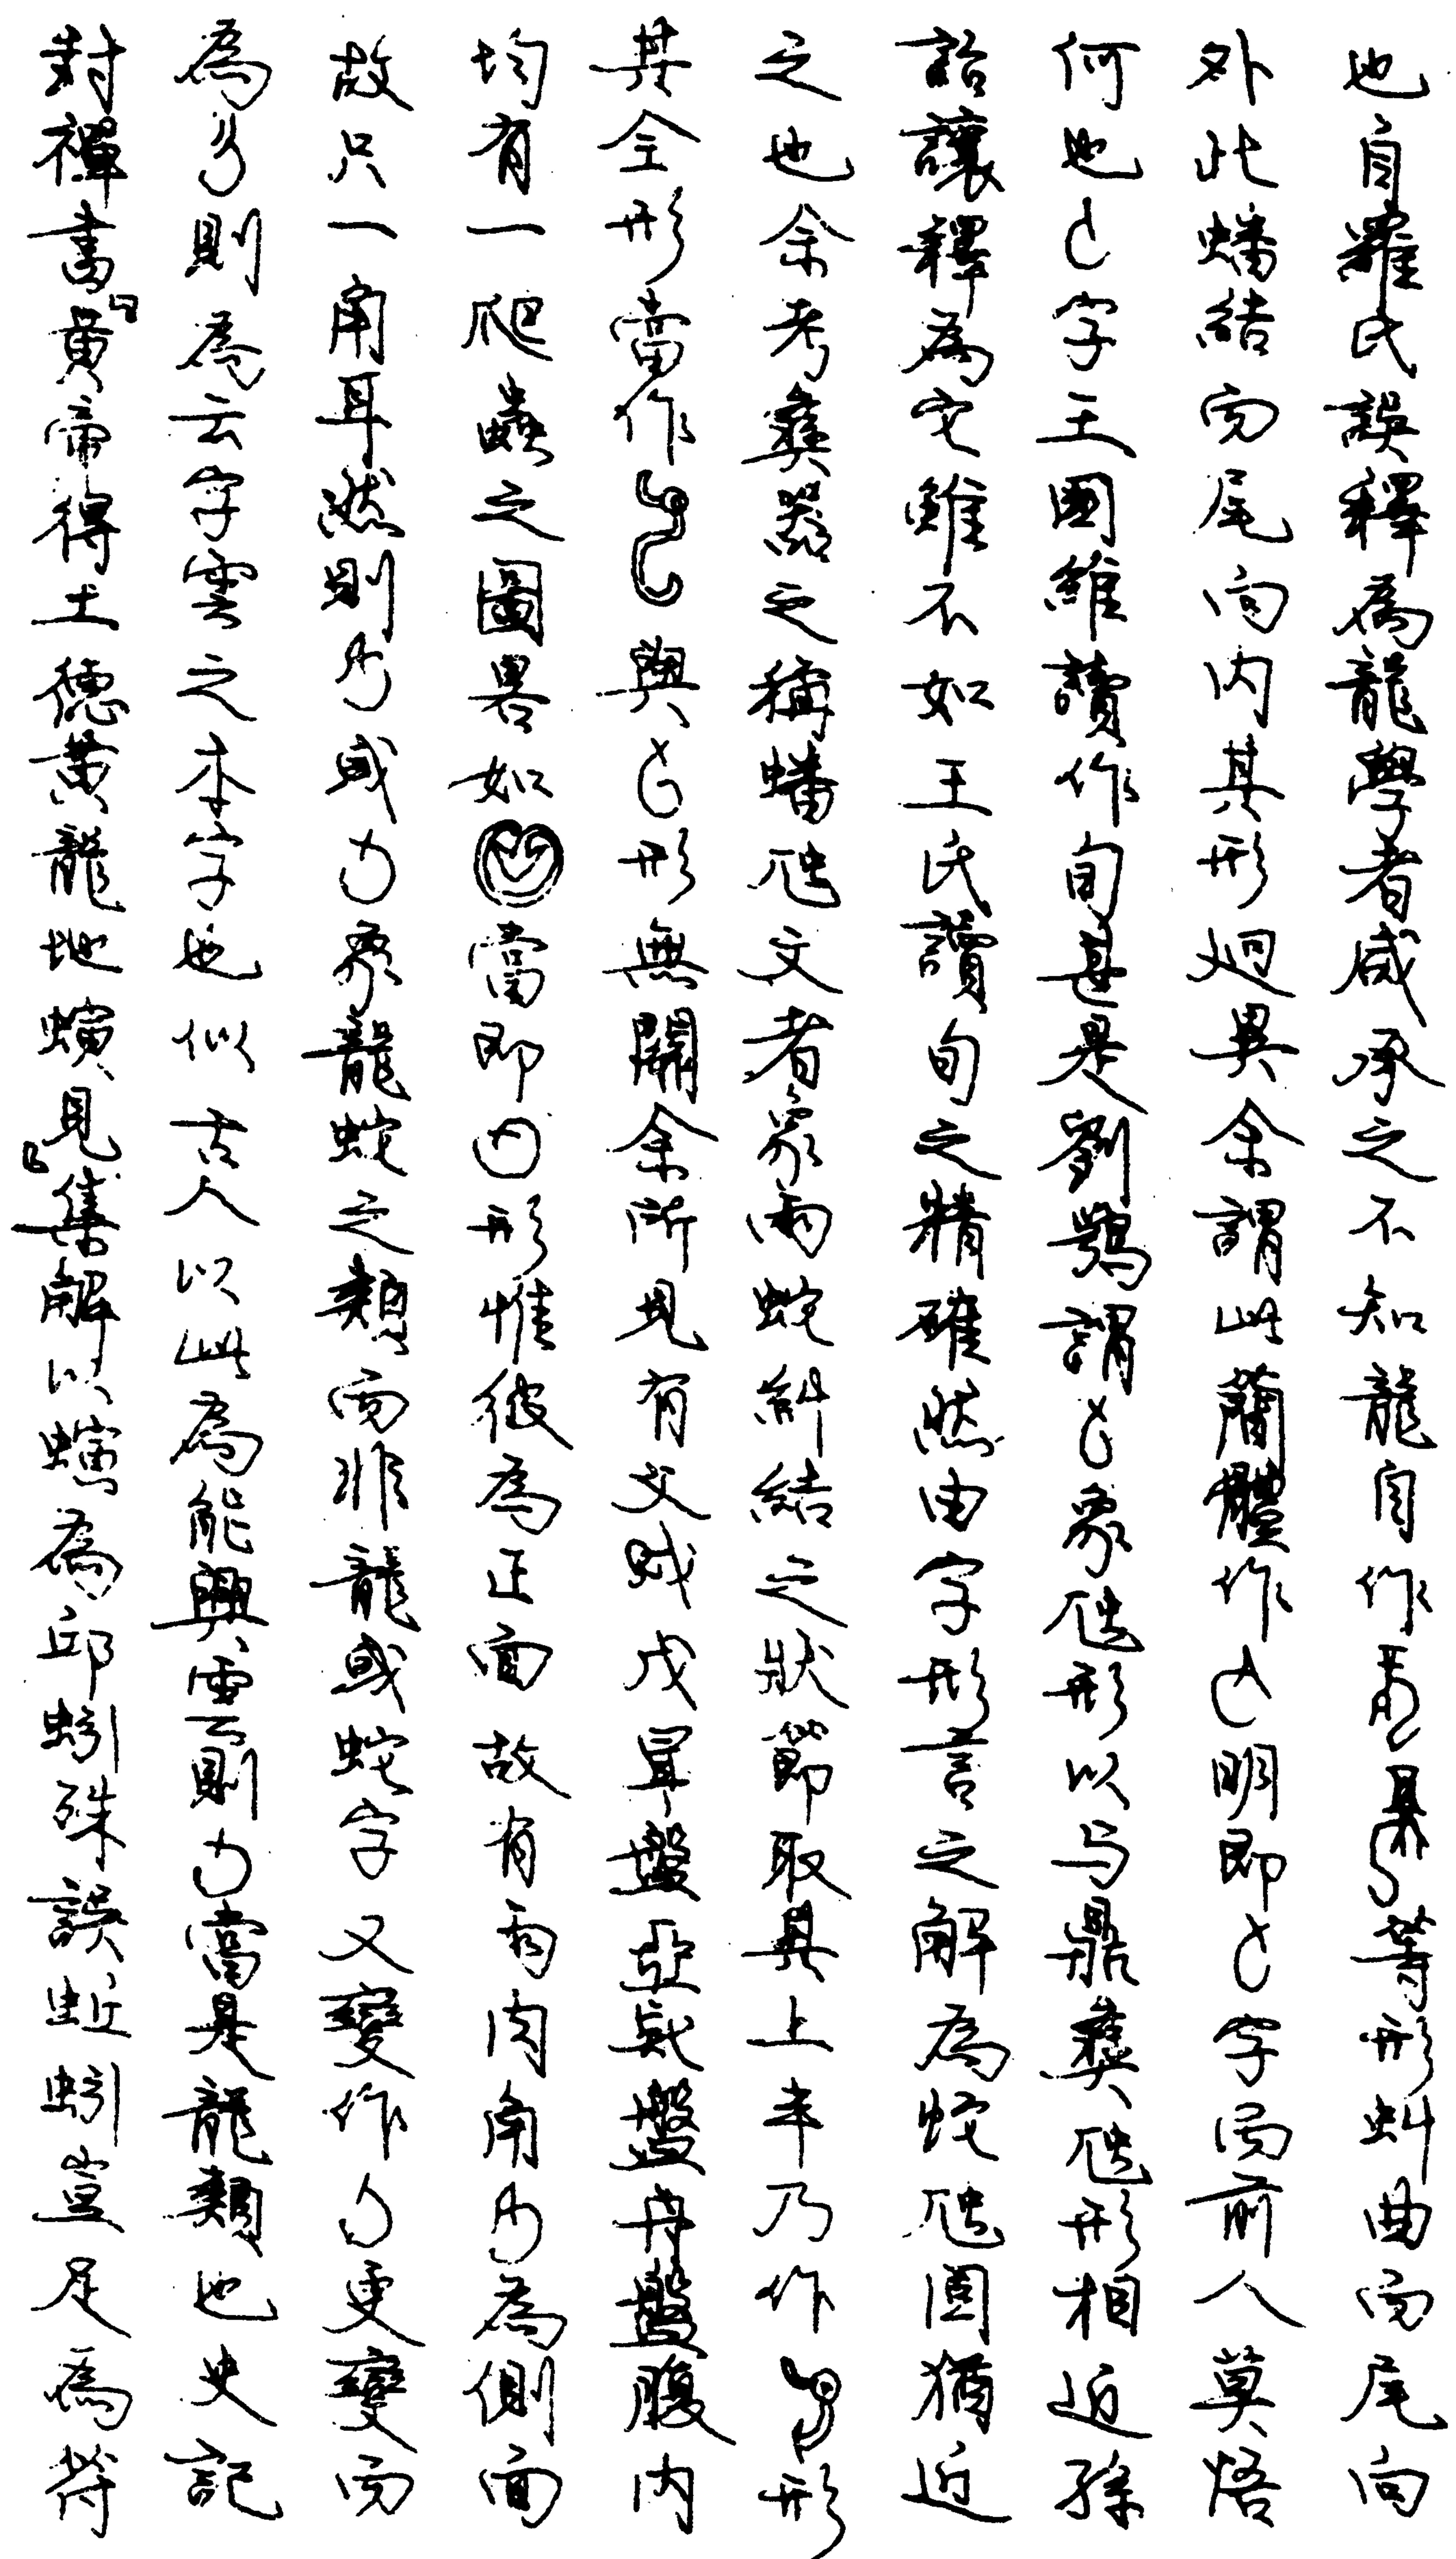 也自羅氏誤釋為龍學者咸承之不知龍自作等形虯曲而尾向
外此蟠結而尾向内其形迥異余謂此簡體作明即字而前人莫悟
何也字王國維讀作旬甚是劉鶚謂象虺形以与鼎彝虺形相近孫
詒讓釋為它雖不如王氏讀旬之精確然由字形言之解為蛇虺圓猶近
之也余考彝器之稱蟠虺文者象兩蛇糾結之狀節取其上半乃作形
其全形當作與形無關余所見有父戊盤亞盤舟盤腹内
均有一爬蟲之圖畧如當即形惟彼為正面故有兩肉角為側面
故只一角耳然則或象龍蛇之類而非龍或蛇字又變作更變而
為則為云字雲之本字也似古人以此為能興雲則當是龍類也史記
封禪書「黃帝得土德黃龍地螾見」集解以螾為邱蚓殊誤蚯蚓豈足為符